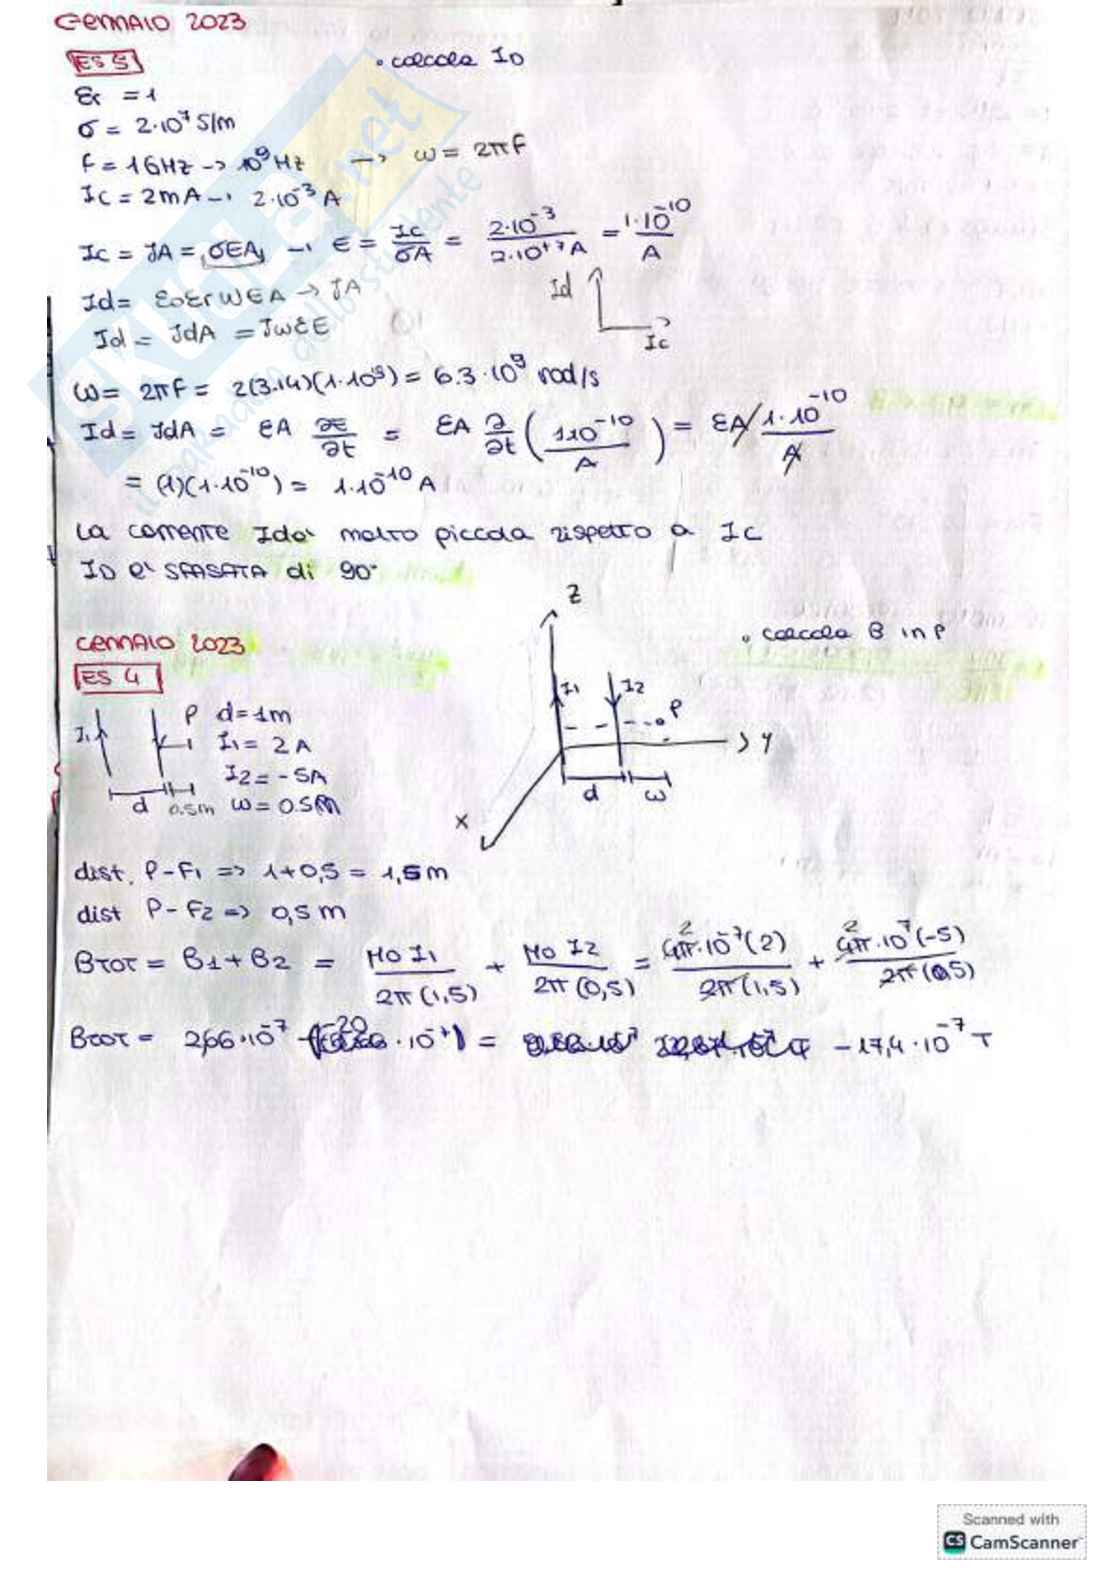 GENNAIO 2023
ES 5
• calcola ID
εr = 1
σ = 2·10^7 S/m
f = 1GHz -> 10^9 Hz -> ω = 2πf
Ic = 2mA -> 2·10^-3 A
Ic = JA = σEA, -> E = Ic/σA = 2·10^-3/2·10^+7 A = 1·10^-10/A
Id = ε0εrωEA -> JA
Id
Ic
Id = JdA = JωεE
ω = 2πf = 2(3.14)(1·10^9) = 6.3·10^9 rad/s
Id = JdA = εA ∂E/∂t = εA ∂/∂t (1·10^-10/A) = εA 1·10^-10/A
= (1)(1·10^-10) = 1·10^-10 A
La corrente Id è molto piccola rispetto a IC
ID è SFASATA di 90°
GENNAIO 2023
ES 4
• calcola B in P
Z
I1 I2 P
Y
d ω
X
I1 P
d 0.5m
d = 1m
I1 = 2A
I2 = -5A
ω = 0.5m
dist. P-F1 => 1+0,5 = 1,5m
dist P-F2 => 0,5m
BTOT = B1+B2 = μ0 I1/2π(1,5) + μ0 I2/2π(0,5) = 4π·10^-7(2)/2π(1,5) + 4π·10^-7(-5)/2π(0,5)
BTOT = 2,66·10^-7 (-20·10^-7) = -17,4·10^-7 T
SKUOLA.net
il paradiso dello studente
Scanned with
CS CamScanner